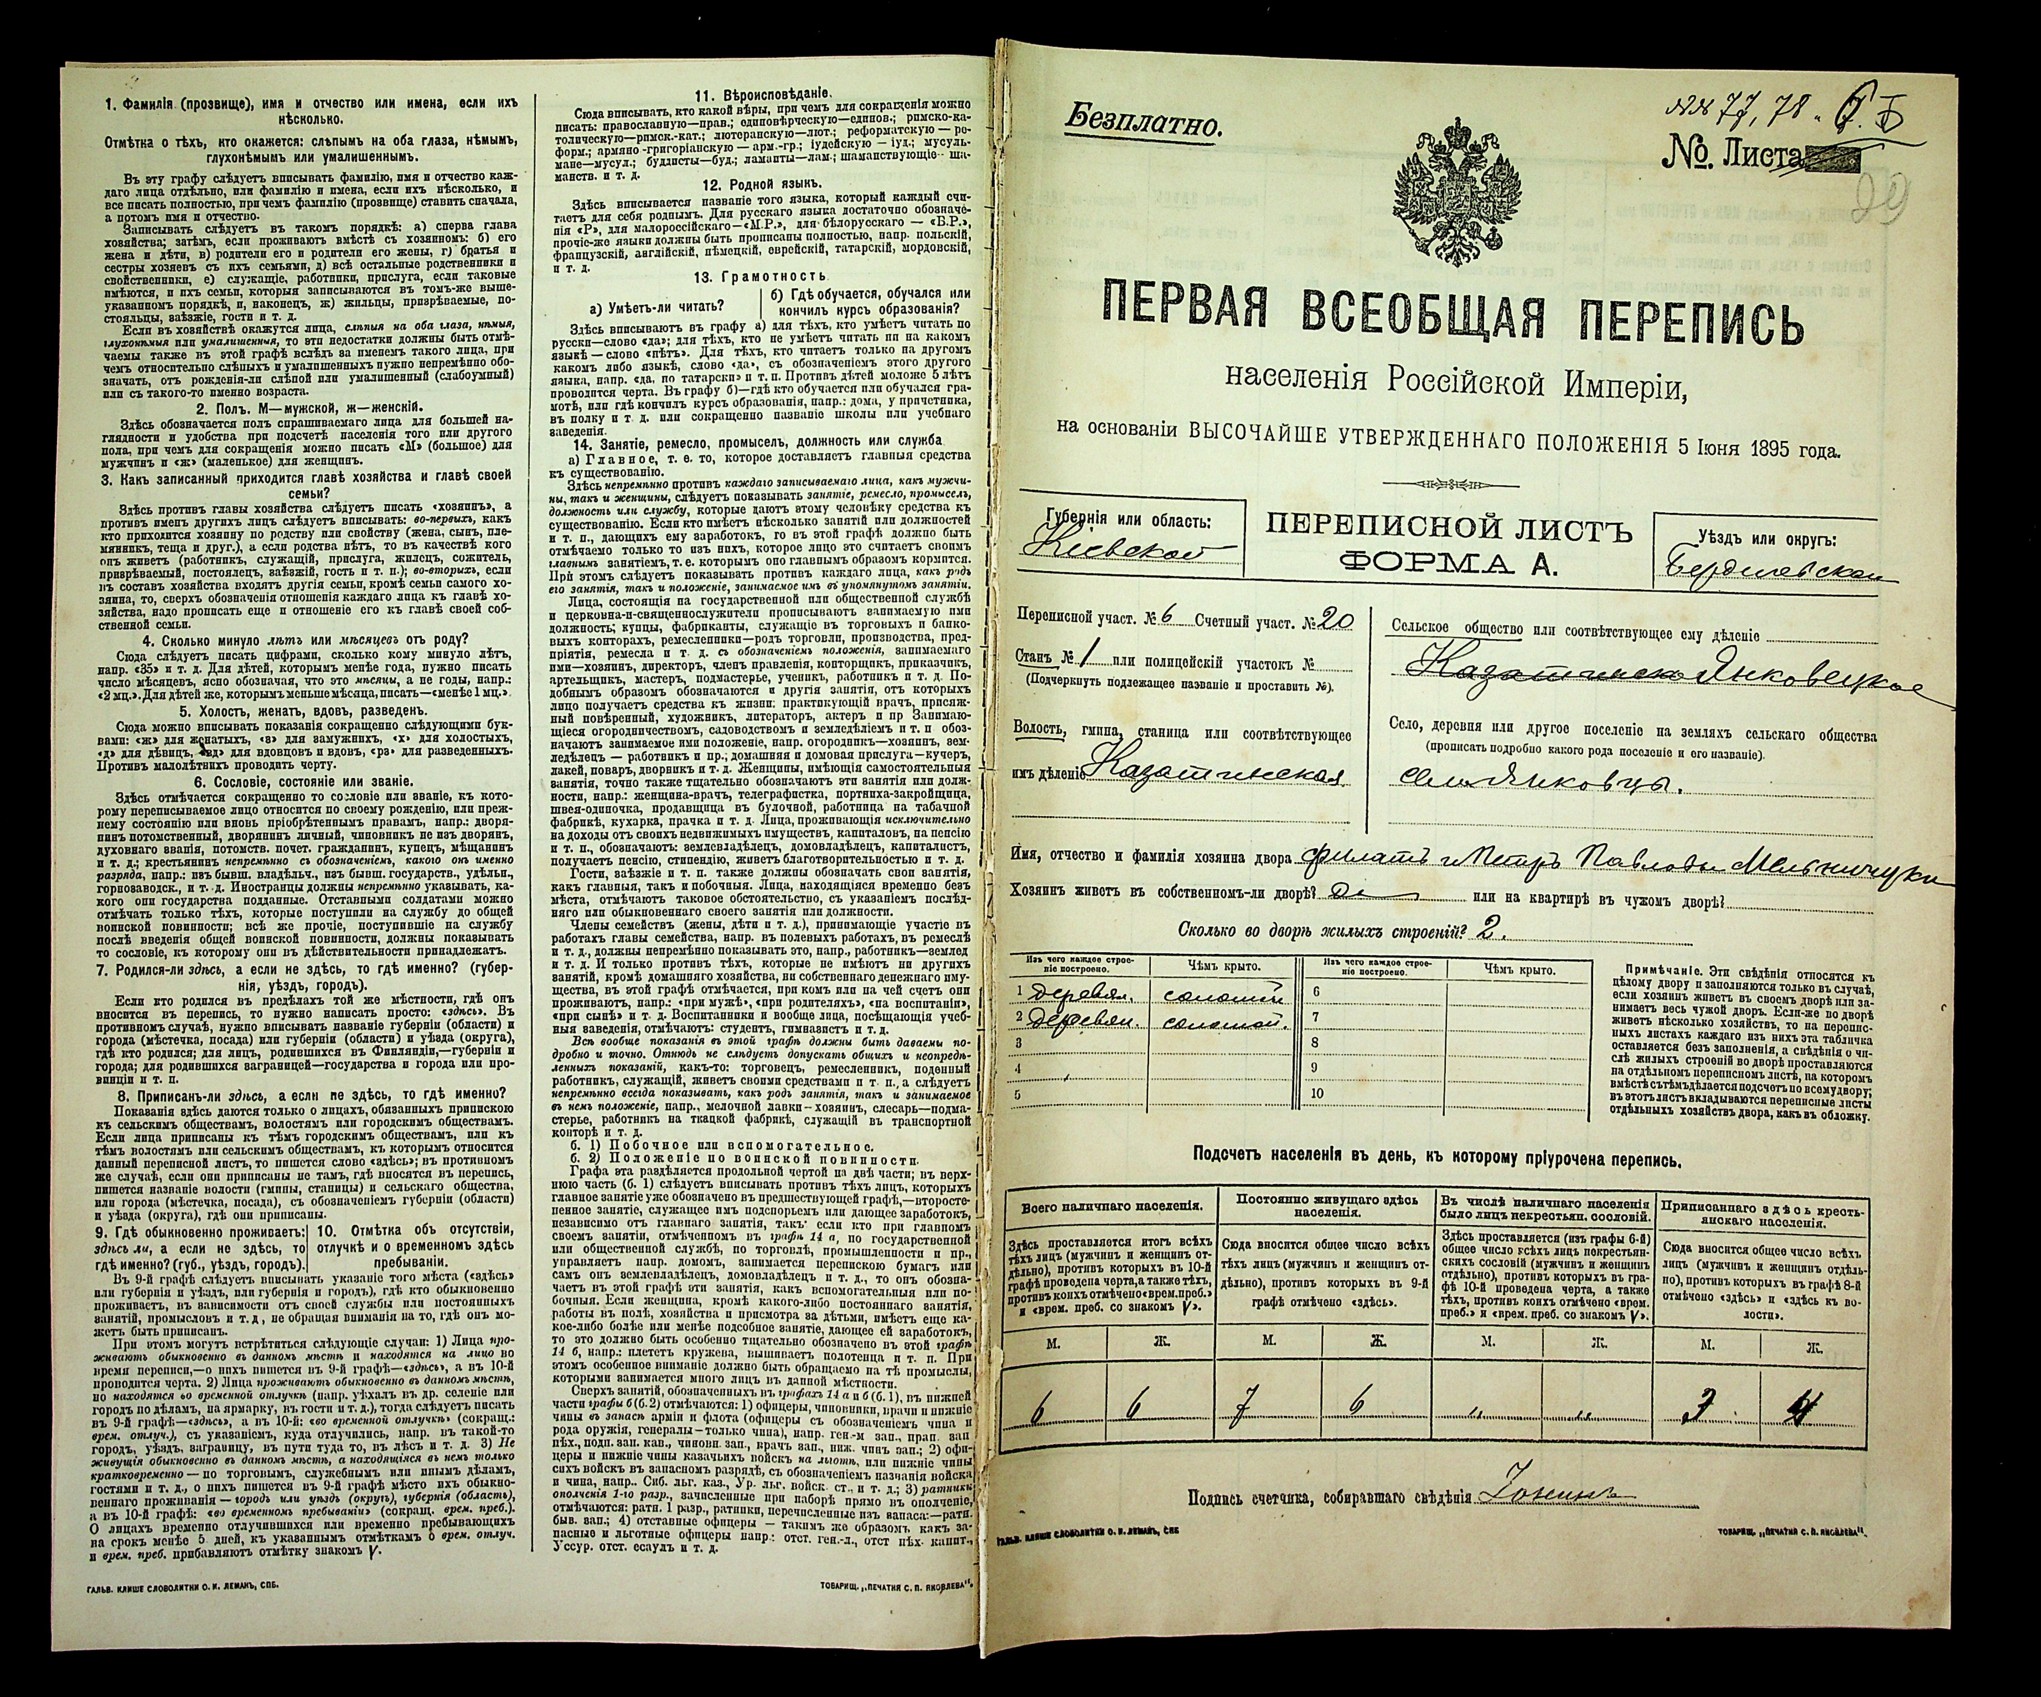 1. Фамилія (прозвище), имя и отчество или имена, если ихъ
нѣсколько.
Отмѣтка о тѣхъ, кто окажется: слѣпымъ на оба глаза, нѣмымъ,
глухонѣмымъ или умалишеннымъ.
Въ эту графу слѣдуетъ вписывать фамилію, имя и отчество каж-
даго лица отдѣльно, или фамилію и имена, если ихъ нѣсколько, и
все писать полностью, при чемъ фамилію (прозвище) ставить сначала,
а потомъ имя и отчество.
Записывать слѣдуетъ въ такомъ порядкѣ: а) сперва глава
хозяйства; затѣмъ, если проживаютъ вмѣстѣ съ хозяиномъ: б) его
жена и дѣти, в) родители его и родители его жены, г) братья и
сестры хозяевъ съ ихъ семьями, д) всѣ остальные родственники и
свойственники, е) служащіе, работники, прислуга, если таковые
имѣются, и ихъ семьи, которыя записываются въ томъ-же выше-
указанномъ порядкѣ, и, наконецъ, ж) жильцы, призрѣваемые, по-
стояльцы, заѣзжіе, гости и т. п.
Если въ хозяйствѣ окажутся лица, слѣпыя на оба глаза, нѣмыя,
глухонѣмыя или умалишенныя, то эти недостатки должны быть отмѣ-
чаемы также въ этой графѣ вслѣдъ за именемъ такого лица, при
чемъ относительно слѣпыхъ и умалишенныхъ нужно непремѣнно обо-
значать, отъ рожденія-ли слѣпой или умалишенный (слабоумный)
или съ такого-то именно возраста.
2. Полъ. М—мужской, ж—женскій.
Здѣсь обозначается полъ спрашиваемаго лица для большей на-
глядности и удобства при подсчетѣ населенія того или другого
пола, при чемъ для сокращенія можно писать «М» (большое) для
мужчинъ и «ж» (маленькое) для женщинъ.
3. Какъ записанный приходится главѣ хозяйства и главѣ своей
семьи?
Здѣсь противъ главы хозяйства слѣдуетъ писать «хозяинъ», а
противъ именъ другихъ лицъ слѣдуетъ вписывать: во-первыхъ, какъ
кто приходится хозяину по родству или свойству (жена, сынъ, пле-
мянникъ, теща и друг.), а если родства нѣтъ, то въ качествѣ кого
онъ живетъ (работникъ, служащій, прислуга, жилецъ, сожитель,
призрѣваемый, постоялецъ, заѣзжій, гость и т. п.); во-вторыхъ, если
въ составъ хозяйства входятъ другія семьи, кромѣ семьи самого хо-
зяина, то, сверхъ обозначенія отношенія каждаго лица къ главѣ хо-
зяйства, надо прописать еще и отношеніе его къ главѣ своей соб-
ственной семьи.
4. Сколько минуло лѣтъ или мѣсяцевъ отъ роду?
Сюда слѣдуетъ писать цифрами, сколько кому минуло лѣтъ,
напр. «35» и т. д. Для дѣтей, которымъ менѣе года, нужно писать
число мѣсяцевъ, ясно обозначая, что это мѣсяцы, а не годы, напр.:
«2 мц.». Для дѣтей же, которымъ меньше мѣсяца, писать—«менѣе 1 мц.».
5. Холостъ, женатъ, вдовъ, разведенъ.
Сюда можно вписывать показанія сокращенно слѣдующими бук-
вами: «ж» для женатыхъ, «з» для замужнихъ, «х» для холостыхъ,
«д» для дѣвицъ, «вд» для вдовцовъ и вдовъ, «рз» для разведенныхъ.
Противъ малолѣтнихъ проводить черту.
6. Сословіе, состояніе или званіе.
Здѣсь отмѣчается сокращенно то сословіе или званіе, къ кото-
рому переписываемое лицо относится по своему рожденію, или преж-
нему состоянію или вновь пріобрѣтеннымъ правамъ, напр.: дворя-
нинъ потомственный, дворянинъ личный, чиновникъ не изъ дворянъ,
духовнаго званія, потомств. почет. гражданинъ, купецъ, мѣщанинъ
и т. д.; крестьянинъ непремѣнно съ обозначеніемъ, какого онъ именно
разряда, напр.: изъ бывш. владѣльч., изъ бывш. государств., удѣльн.,
горнозаводск., и т. д. Иностранцы должны непремѣнно указывать, ка-
кого они государства подданные. Отставными солдатами можно
отмѣчать только тѣхъ, которые поступили на службу до общей
воинской повинности; всѣ же прочіе, поступившіе на службу
послѣ введенія общей воинской повинности, должны показывать
то сословіе, къ которому они въ дѣйствительности принадлежатъ.
7. Родился-ли здѣсь, а если не здѣсь, то гдѣ именно? (губер-
нія, уѣздъ, городъ).
Если кто родился въ предѣлахъ той же мѣстности, гдѣ онъ
вносится въ перепись, то нужно написать просто: «здѣсь». Въ
противномъ случаѣ, нужно вписывать названіе губерніи (области) и
города (мѣстечка, посада) или губерніи (области) и уѣзда (округа),
гдѣ кто родился; для лицъ, родившихся въ Финляндіи,—губерніи и
города; для родившихся заграницей—государства и города или про-
винціи и т. п.
8. Приписанъ-ли здѣсь, а если не здѣсь, то гдѣ именно?
Показанія здѣсь даются только о лицахъ, обязанныхъ припискою
къ сельскимъ обществамъ, волостямъ или городскимъ обществамъ.
Если лица приписаны къ тѣмъ городскимъ обществамъ, или къ
тѣмъ волостямъ или сельскимъ обществамъ, къ которымъ относится
данный переписной листъ, то пишется слово «здѣсь»; въ противномъ
же случаѣ, если они приписаны не тамъ, гдѣ вносятся въ перепись,
пишется названіе волости (гмины, станицы) и сельскаго общества,
или города (мѣстечка, посада), съ обозначеніемъ губерніи (области)
и уѣзда (округа), гдѣ они приписаны.
9. Гдѣ обыкновенно проживаетъ:
здѣсь ли, а если не здѣсь, то
гдѣ именно? (губ., уѣздъ, городъ).
10. Отмѣтка объ отсутствіи,
отлучкѣ и о временномъ здѣсь
пребываніи.
Въ 9-й графѣ слѣдуетъ вписывать указаніе того мѣста («здѣсь»
или губернія и уѣздъ, или губернія и городъ), гдѣ кто обыкновенно
проживаетъ, въ зависимости отъ своей службы или постоянныхъ
занятій, промысловъ и т. д., не обращая вниманія на то, гдѣ онъ мо-
жетъ быть приписанъ.
При этомъ могутъ встрѣтиться слѣдующіе случаи: 1) Лица про-
живаютъ обыкновенно въ данномъ мѣстѣ и находятся на лицо во
время переписи,—о нихъ пишется въ 9-й графѣ—«здѣсь», а въ 10-й
проводится черта. 2) Лица проживаютъ обыкновенно въ данномъ мѣстѣ,
но находятся во временной отлучкѣ (напр. уѣхалъ въ др. селеніе или
городъ по дѣламъ, на ярмарку, въ гости и т. д.), тогда слѣдуетъ писать
въ 9-й графѣ—«здѣсь», а въ 10-й: «во временной отлучкѣ» (сокращ.:
врем. отлуч.), съ указаніемъ, куда отлучились, напр. въ такой-то
городъ, уѣздъ, заграницу, въ пути туда то, въ лѣсъ и т. д. 3) Не
живущія обыкновенно въ данномъ мѣстѣ, а находящіяся въ немъ только
кратковременно — по торговымъ, служебнымъ или инымъ дѣламъ,
гостями и т. д., о нихъ пишется въ 9-й графѣ мѣсто ихъ обыкно-
веннаго проживанія — городъ или уѣздъ (округъ), губернія (область),
а въ 10-й графѣ: «во временномъ пребываніи» (сокращ. врем. преб.).
О лицахъ временно отлучившихся или временно пребывающихъ
на срокъ менѣе 5 дней, къ указаннымъ отмѣткамъ о врем. отлуч.
и врем. преб. прибавляютъ отмѣтку знакомъ V.
ГАЛЬВ. КЛИШЕ СЛОВОЛИТНИ О. И. ЛЕМАНЪ, СПБ.
11. Вѣроисповѣданіе.
Сюда вписывать, кто какой вѣры, при чемъ для сокращенія можно
писать: православную—прав.; единовѣрческую—единов.; римско-ка-
толическую—римск.-кат.; лютеранскую—лют.; реформатскую — ре-
форм.; армяно-григоріанскую — арм.-гр.; іудейскую — іуд.; мусуль-
мане—мусул.; буддисты—буд.; ламаиты—лам.; шаманствующіе— ша-
манств. и т. д.
12. Родной языкъ.
Здѣсь вписывается названіе того языка, который каждый счи-
таетъ для себя роднымъ. Для русскаго языка достаточно обозначе-
нія «Р», для малороссійскаго—«М.Р.», для бѣлорусскаго — «Б.Р.»,
прочіе-же языки должны быть прописаны полностью, напр. польскій,
французскій, англійскій, нѣмецкій, еврейскій, татарскій, мордовскій,
и т. д.
13. Грамотность
а) Умѣетъ-ли читать?
б) Гдѣ обучается, обучался или
кончилъ курсъ образованія?
Здѣсь вписываютъ въ графу а) для тѣхъ, кто умѣетъ читать по
русски—слово «да»; для тѣхъ, кто не умѣетъ читать ни на какомъ
языкѣ — слово «нѣтъ». Для тѣхъ, кто читаетъ только на другомъ
какомъ либо языкѣ, слово «да», съ обозначеніемъ этого другого
языка, напр. «да, по татарски» и т. п. Противъ дѣтей моложе 5 лѣтъ
проводится черта. Въ графу б)—гдѣ кто обучается или обучался гра-
мотѣ, или гдѣ кончилъ курсъ образованія, напр.: дома, у причетника,
въ полку и т. д. или сокращенно названіе школы или учебнаго
заведенія.
14. Занятіе, ремесло, промыселъ, должность или служба
а) Главное, т. е. то, которое доставляетъ главныя средства
къ существованію.
Здѣсь непремѣнно противъ каждаго записываемаго лица, какъ мужчи-
ны, такъ и женщины, слѣдуетъ показывать занятіе, ремесло, промыселъ,
должность или службу, которые даютъ этому человѣку средства къ
существованію. Если кто имѣетъ нѣсколько занятій или должностей
и т. п., дающихъ ему заработокъ, то въ этой графѣ должно быть
отмѣчаемо только то изъ нихъ, которое лицо это считаетъ своимъ
главнымъ занятіемъ, т. е. которымъ оно главнымъ образомъ кормится.
При этомъ слѣдуетъ показывать противъ каждаго лица, какъ родъ
его занятія, такъ и положеніе, занимаемое имъ въ упомянутомъ занятіи.
Лица, состоящія на государственной или общественной службѣ
и церковно-и-священнослужители прописываютъ занимаемую ими
должность; купцы, фабриканты, служащіе въ торговыхъ и банко-
выхъ конторахъ, ремесленники—родъ торговли, производства, пред-
пріятія, ремесла и т. д. съ обозначеніемъ положенія, занимаемаго
ими—хозяинъ, директоръ, членъ правленія, конторщикъ, приказчикъ,
артельщикъ, мастеръ, подмастерье, ученикъ, работникъ и т. д. По-
добнымъ образомъ обозначаются и другія занятія, отъ которыхъ
лицо получаетъ средства къ жизни: практикующій врачъ, присяж-
ный повѣренный, художникъ, литераторъ, актеръ и пр Занимаю-
щіеся огородничествомъ, садоводствомъ и земледѣліемъ и т. п обоз-
начаютъ занимаемое ими положеніе, напр. огородникъ—хозяинъ, зем-
ледѣлецъ — работникъ и пр.; домашняя и домовая прислуга—кучеръ,
лакей, поваръ, дворникъ и т. д. Женщины, имѣющія самостоятельныя
занятія, точно также тщательно обозначаютъ эти занятія или долж-
ности, напр.: женщина-врачъ, телеграфистка, портниха-закройщица,
швея-одиночка, продавщица въ булочной, работница на табачной
фабрикѣ, кухарка, прачка и т. д. Лица, проживающія исключительно
на доходы отъ своихъ недвижимыхъ имуществъ, капиталовъ, на пенсію
и т. п., обозначаютъ: землевладѣлецъ, домовладѣлецъ, капиталистъ,
получаетъ пенсію, стипендію, живетъ благотворительностью и т. д.
Гости, заѣзжіе и т. п. также должны обозначать свои занятія,
какъ главныя, такъ и побочныя. Лица, находящіяся временно безъ
мѣста, отмѣчаютъ таковое обстоятельство, съ указаніемъ послѣд-
няго или обыкновеннаго своего занятія или должности.
Члены семействъ (жены, дѣти и т. д.), принимающіе участіе въ
работахъ главы семейства, напр. въ полевыхъ работахъ, въ ремеслѣ
и т. д., должны непремѣнно показывать это, напр., работникъ—землед
и т. д. И только противъ тѣхъ, которые не имѣютъ ни другихъ
занятій, кромѣ домашняго хозяйства, ни собственнаго денежнаго иму-
щества, въ этой графѣ отмѣчается, при комъ или на чей счетъ они
проживаютъ, напр.: «при мужѣ», «при родителяхъ», «на воспитаніи»,
«при сынѣ» и т. д. Воспитанники и вообще лица, посѣщающія учеб-
ныя заведенія, отмѣчаютъ: студентъ, гимназистъ и т. д.
Всѣ вообще показанія въ этой графѣ должны быть даваемы по-
дробно и точно. Отнюдь не слѣдуетъ допускать общихъ и неопредѣ-
ленныхъ показаній, какъ-то: торговецъ, ремесленникъ, поденный
работникъ, служащій, живетъ своими средствами и т. п., а слѣдуетъ
непремѣнно всегда показывать, какъ родъ занятія, такъ и занимаемое
въ немъ положеніе, напр., мелочной лавки—хозяинъ, слесарь—подма-
стерье, работникъ на ткацкой фабрикѣ, служащій въ транспортной
конторѣ и т. д.
б. 1) Побочное или вспомогательное.
б. 2) Положеніе по воинской повинности.
Графа эта раздѣляется продольной чертой на двѣ части; въ верх-
нюю часть (б. 1) слѣдуетъ вписывать противъ тѣхъ лицъ, которыхъ
главное занятіе уже обозначено въ предшествующей графѣ,—второсте-
пенное занятіе, служащее имъ подспорьемъ или дающее заработокъ,
независимо отъ главнаго занятія, такъ: если кто при главномъ
своемъ занятіи, отмѣченномъ въ графѣ 14 а, по государственной
или общественной службѣ, по торговлѣ, промышленности и пр.,
управляетъ напр. домомъ, занимается перепискою бумагъ или
самъ онъ землевладѣлецъ, домовладѣлецъ и т. д., то онъ обозна-
чаетъ въ этой графѣ эти занятія, какъ вспомогательныя или по-
бочныя. Если женщина, кромѣ какого-либо постояннаго занятія,
работы въ полѣ, хозяйства и присмотра за дѣтьми, имѣетъ еще ка-
кое-либо болѣе или менѣе подсобное занятіе, дающее ей заработокъ,
то это должно быть особенно тщательно обозначено въ этой графѣ
14 б, напр.: плететъ кружева, вышиваетъ полотенца и т. п. При
этомъ особенное вниманіе должно быть обращаемо на тѣ промыслы,
которыми занимается много лицъ въ данной мѣстности.
Сверхъ занятій, обозначенныхъ въ графахъ 14 а и б (б. 1), въ нижней
части графы б (б. 2) отмѣчаются: 1) офицеры, чиновники, врачи и нижніе
чины въ запасѣ арміи и флота (офицеры съ обозначеніемъ чина и
рода оружія, генералы—только чина), напр. ген.-м зап., прап. зап
пѣх., подп. зап. кав., чиновн. зап., врачъ зап., ниж. чинъ зап.; 2) офи-
церы и нижніе чины казачьихъ войскъ на льготѣ, или нижніе чины
сихъ войскъ въ запасномъ разрядѣ, съ обозначеніемъ названія войска
и чина, напр.. Сиб. льг. каз., Ур. льг. войск. ст., и т. д.; 3) ратники
ополченія 1-го разр., зачисленные при наборѣ прямо въ ополченіе,
отмѣчаются: ратн. 1 разр., ратники, перечисленные изъ запаса:—ратн.
быв. зап.; 4) отставные офицеры — такимъ же образомъ какъ за-
пасные и льготные офицеры напр.: отст. ген.-л., отст пѣх. капит.,
Уссур. отст. есаулъ и т. д.
ТОВАРИЩ. „ПЕЧАТНЯ С. П. ЯКОВЛЕВА“.
Безплатно.
№№ 77, 78
№. Листа
99
ПЕРВАЯ ВСЕОБЩАЯ ПЕРЕПИСЬ
населенія Россійской Имперіи,
на основаніи ВЫСОЧАЙШЕ УТВЕРЖДЕННАГО ПОЛОЖЕНІЯ 5 Іюня 1895 года.
Губернія или область:
Кіевской
ПЕРЕПИСНОЙ ЛИСТЪ
ФОРМА А.
Уѣздъ или округъ:
Бердичевской
Переписной участ. № 6 Счетный участ. № 20
Станъ № 1 или полицейскій участокъ №
(Подчеркнуть подлежащее названіе и проставить №).
Волость, гмина, станица или соотвѣтствующее
имъ дѣленіе Казатинская
Сельское общество или соотвѣтствующее ему дѣленіе
Казатинско Янковецкое
Село, деревня или другое поселеніе на земляхъ сельскаго общества
(прописать подробно какого рода поселеніе и его названіе).
село Янковцы.
Имя, отчество и фамилія хозяина двора Филатъ и Петръ Павловы Мельничуки
Хозяинъ живетъ въ собственномъ-ли дворѣ? да или на квартирѣ въ чужомъ дворѣ?
Сколько во дворѣ жилыхъ строеній? 2.
Изъ чего каждое строе-
ніе построено.
Чѣмъ крыто.
Изъ чего каждое строе-
ніе построено.
Чѣмъ крыто.
1 деревян. соломой 6
2 деревян. соломой. 7
3 8
4 9
5 10
Примѣчаніе. Эти свѣдѣнія относятся къ
цѣлому двору и заполняются только въ случаѣ,
если хозяинъ живетъ въ своемъ дворѣ или за-
нимаетъ весь чужой дворъ. Если-же во дворѣ
живетъ нѣсколько хозяйствъ, то на перепис-
ныхъ листахъ каждаго изъ нихъ эта табличка
оставляется безъ заполненія, а свѣдѣнія о чи-
слѣ жилыхъ строеній во дворѣ проставляются
на отдѣльномъ переписномъ листѣ, на которомъ
вмѣстѣ съ тѣмъ дѣлается подсчетъ по всему двору;
въ этотъ листъ вкладываются переписные листы
отдѣльныхъ хозяйствъ двора, какъ въ обложку.
Подсчетъ населенія въ день, къ которому пріурочена перепись.
Всего наличнаго населенія.
Постоянно живущаго здѣсь
населенія.
Въ числѣ наличнаго населенія
было лицъ некрестьян. сословій.
Приписаннаго здѣсь кресть-
янскаго населенія.
Здѣсь проставляется итогъ всѣхъ
тѣхъ лицъ (мужчинъ и женщинъ от-
дѣльно), противъ которыхъ въ 10-й
графѣ проведена черта, а также тѣхъ,
противъ коихъ отмѣчено «врем. преб.»
и «врем. преб. со знакомъ V».
Сюда вносится общее число всѣхъ
тѣхъ лицъ (мужчинъ и женщинъ от-
дѣльно), противъ которыхъ въ 9-й
графѣ отмѣчено «здѣсь».
Здѣсь проставляется (изъ графы 6-й)
общее число всѣхъ лицъ некрестьян-
скихъ сословій (мужчинъ и женщинъ
отдѣльно), противъ которыхъ въ гра-
фѣ 10-й проведена черта, а также
тѣхъ, противъ коихъ отмѣчено «врем.
преб.» и «врем. преб. со знакомъ V».
Сюда вносится общее число всѣхъ
лицъ (мужчинъ и женщинъ отдѣль-
но), противъ которыхъ въ графѣ 8-й
отмѣчено «здѣсь» и «здѣсь къ во-
лости».
М. Ж. М. Ж. М. Ж. М. Ж.
6 6 7 6 „ „
Подпись счетчика, собиравшаго свѣдѣнія
ГАЛЬВ. КЛИШЕ СЛОВОЛИТНИ О. И. ЛЕМАНЪ, СПБ
ТОВАРИЩ. „ПЕЧАТНЯ С. П. ЯКОВЛЕВА“.